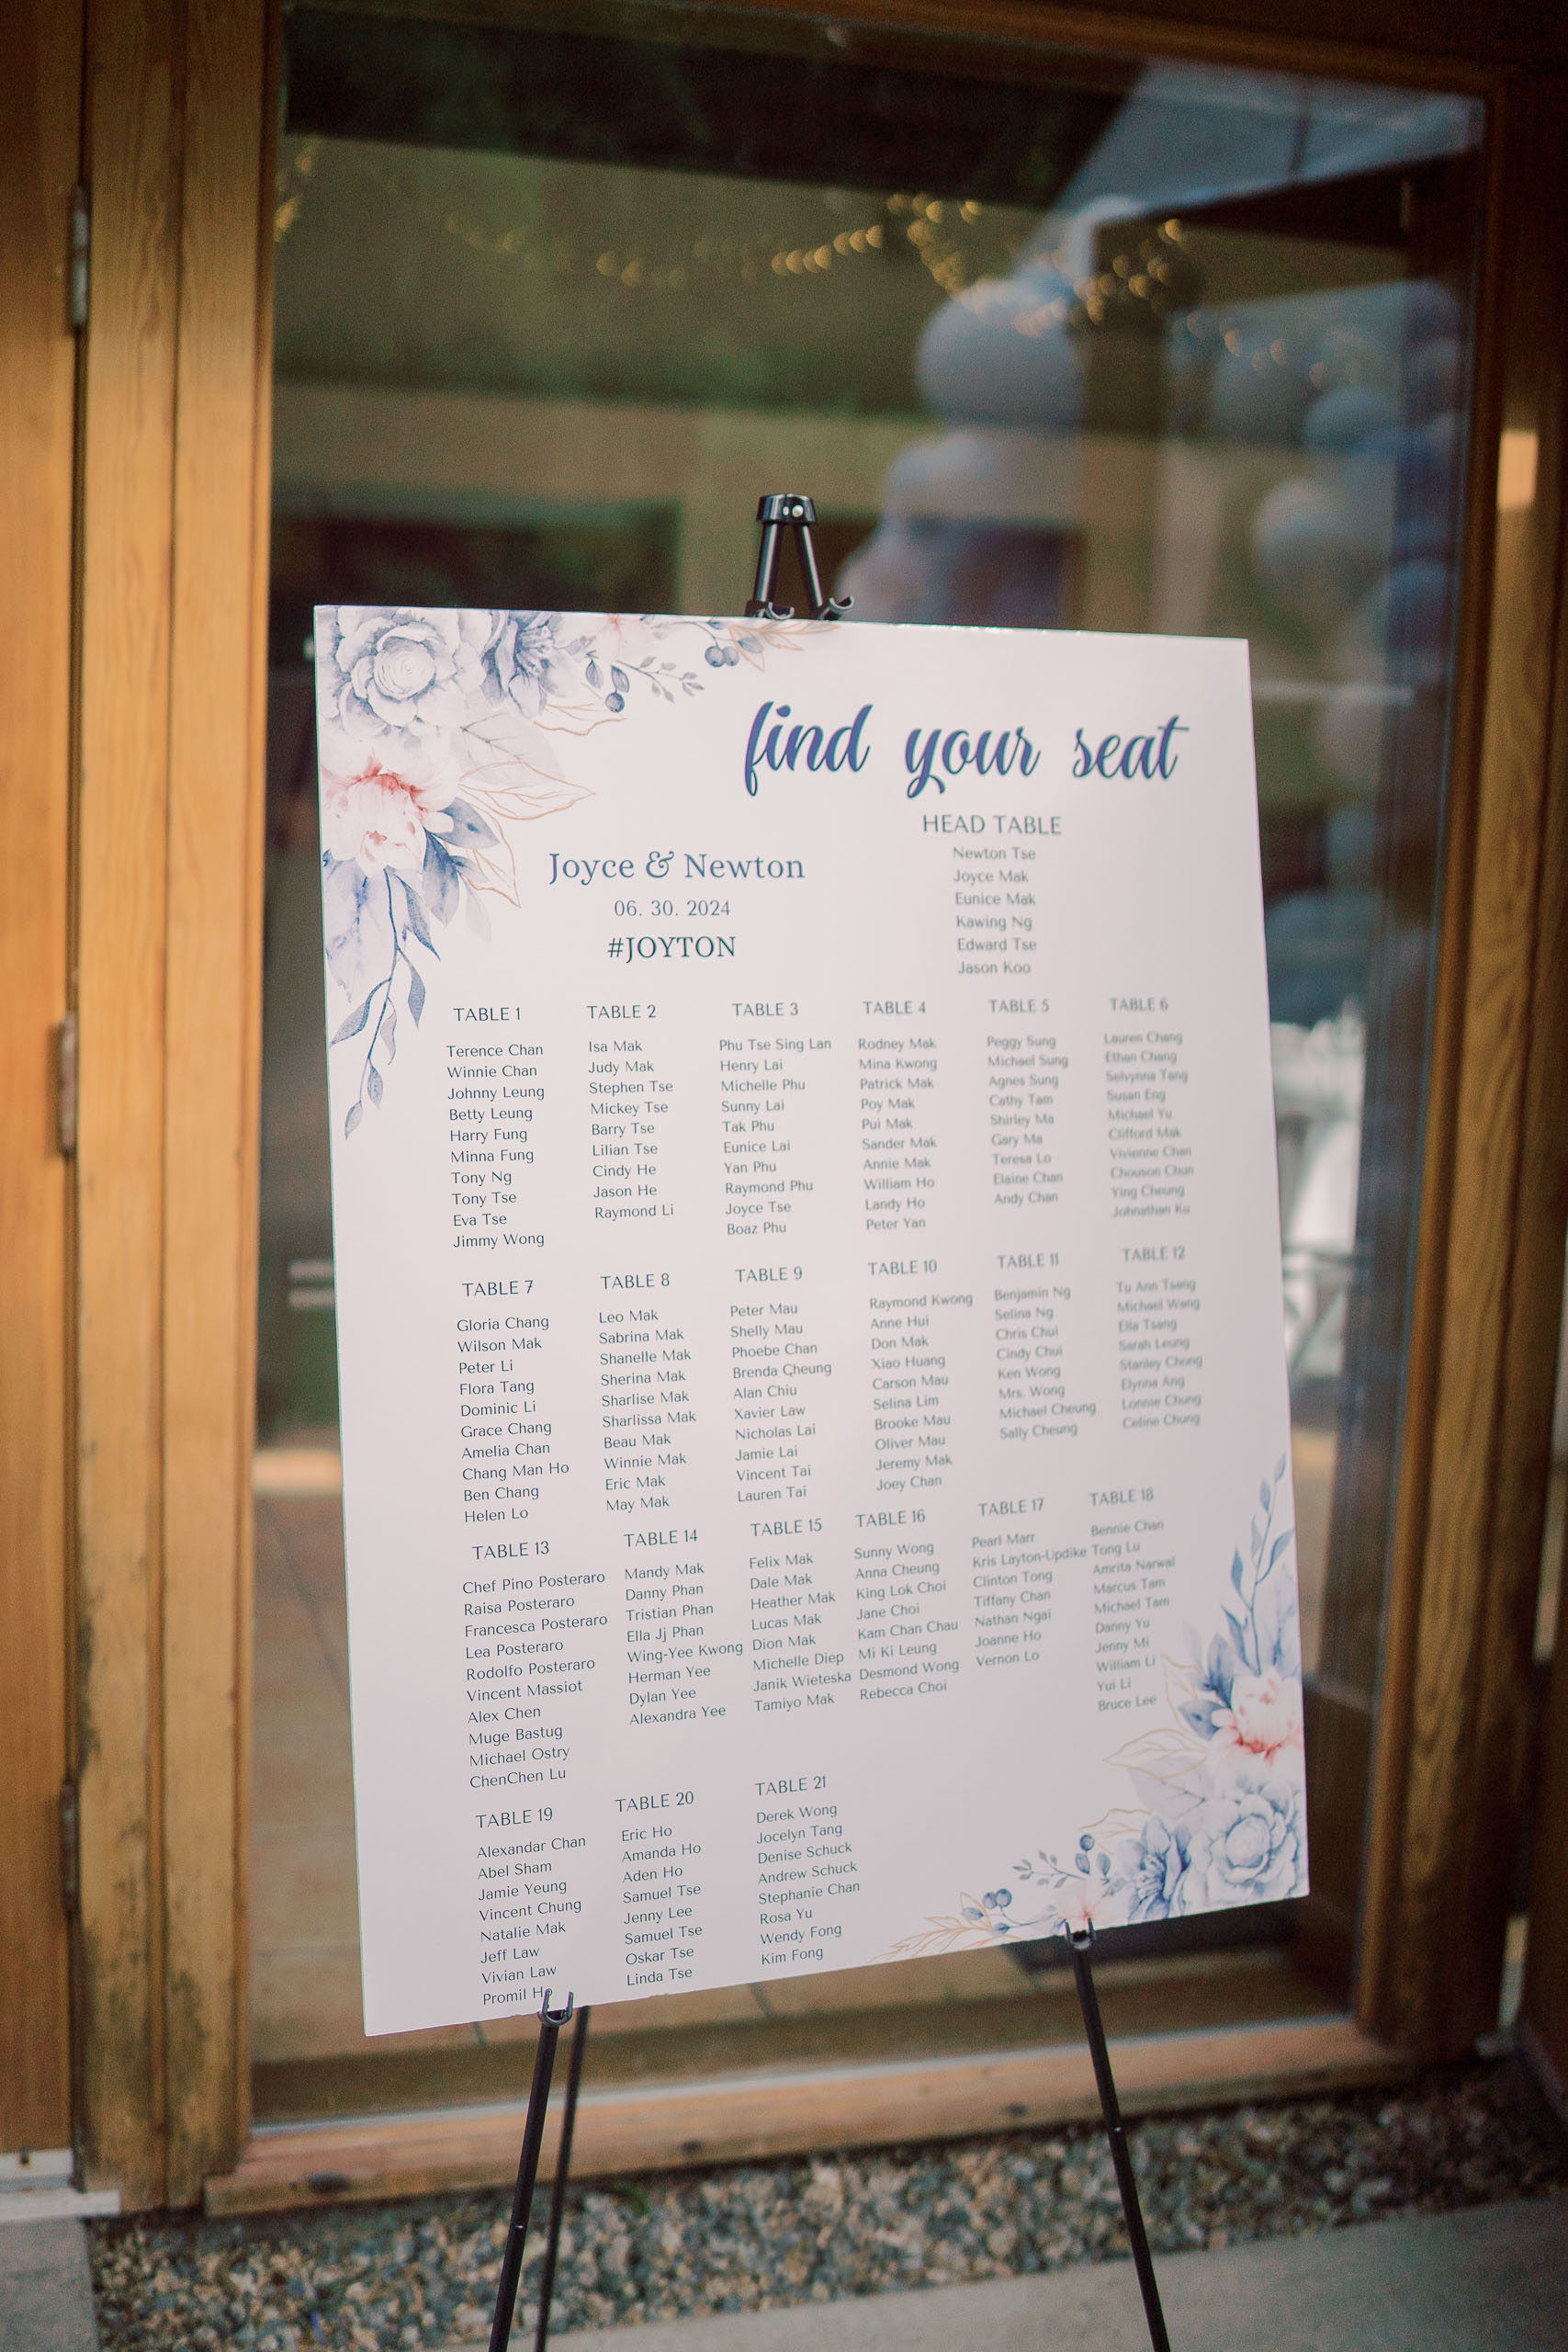 find your seat
Joyce & Newton
06. 30. 2024
#JOYTON
HEAD TABLE
Newton Tse
Joyce Mak
Eunice Mak
Kawing Ng
Edward Tse
Jason Koo
TABLE 1
Terence Chan
Winnie Chan
Johnny Leung
Betty Leung
Harry Fung
Minna Fung
Tony Ng
Tony Tse
Eva Tse
Jimmy Wong
TABLE 2
Isa Mak
Judy Mak
Stephen Tse
Mickey Tse
Barry Tse
Lilian Tse
Cindy He
Jason He
Raymond Li
TABLE 3
Phu Tse Sing Lan
Henry Lai
Michelle Phu
Sunny Lai
Tak Phu
Eunice Lai
Yan Phu
Raymond Phu
Joyce Tse
Boaz Phu
TABLE 4
Rodney Mak
Mina Kwong
Patrick Mak
Poy Mak
Pui Mak
Sander Mak
Annie Mak
William Ho
Landy Ho
Peter Yan
TABLE 5
Peggy Sung
Michael Sung
Agnes Sung
Cathy Tam
Shirley Ma
Gary Ma
Teresa Lo
Elaine Chan
Andy Chan
TABLE 6
Lauren Chang
Ethan Chang
Selvynne Tang
Susan Eng
Michael Yu
Clifford Mak
Vivienne Chan
Chun
Ying Cheung
Johnathan Ku
TABLE 7
Gloria Chang
Wilson Mak
Peter Li
Flora Tang
Dominic Li
Grace Chang
Amelia Chan
Chang Man Ho
Ben Chang
Helen Lo
TABLE 8
Leo Mak
Sabrina Mak
Shanelle Mak
Sherina Mak
Sharlise Mak
Sharlissa Mak
Beau Mak
Winnie Mak
Eric Mak
May Mak
TABLE 9
Peter Mau
Shelly Mau
Phoebe Chan
Brenda Cheung
Alan Chiu
Xavier Law
Nicholas Lai
Jamie Lai
Vincent Tai
Lauren Tai
TABLE 10
Raymond Kwong
Anne Hui
Don Mak
Xiao Huang
Carson Mau
Selina Lim
Brooke Mau
Oliver Mau
Jeremy Mak
Joey Chan
TABLE 11
Benjamin Ng
Selina Ng
Chris Chui
Cindy Chui
Ken Wong
Mrs. Wong
Michael Cheung
Sally Cheung
TABLE 12
Tu Ann Tsang
Michael Wang
Ella Tsang
Sarah Leung
Stanley Chong
Elynna Ang
Lonnie Chung
Celine Chung
TABLE 13
Chef Pino Posteraro
Raisa Posteraro
Francesca Posteraro
Lea Posteraro
Rodolfo Posteraro
Vincent Massiot
Alex Chen
Muge Bastug
Michael Ostry
ChenChen Lu
TABLE 14
Mandy Mak
Danny Phan
Tristian Phan
Ella Jj Phan
Wing-Yee Kwong
Herman Yee
Dylan Yee
Alexandra Yee
TABLE 15
Felix Mak
Dale Mak
Heather Mak
Lucas Mak
Dion Mak
Michelle Diep
Janik Wieteska
Tamiyo Mak
TABLE 16
Sunny Wong
Anna Cheung
King Lok Choi
Jane Choi
Kam Chan Chau
Mi Ki Leung
Desmond Wong
Rebecca Choi
TABLE 17
Pearl Marr
Kris Layton-Updike
Clinton Tong
Tiffany Chan
Nathan Ngai
Joanne Ho
Vernon Lo
TABLE 18
Bennie Chan
Tong Lu
Amrita Narwal
Marcus Tam
Michael Tam
Danny Yu
Jenny Mi
William Li
Yui Li
Bruce Lee
TABLE 19
Alexandar Chan
Abel Sham
Jamie Yeung
Vincent Chung
Natalie Mak
Jeff Law
Vivian Law
Promil Ho
TABLE 20
Eric Ho
Amanda Ho
Aden Ho
Samuel Tse
Jenny Lee
Samuel Tse
Oskar Tse
Linda Tse
TABLE 21
Derek Wong
Jocelyn Tang
Denise Schuck
Andrew Schuck
Stephanie Chan
Rosa Yu
Wendy Fong
Kim Fong